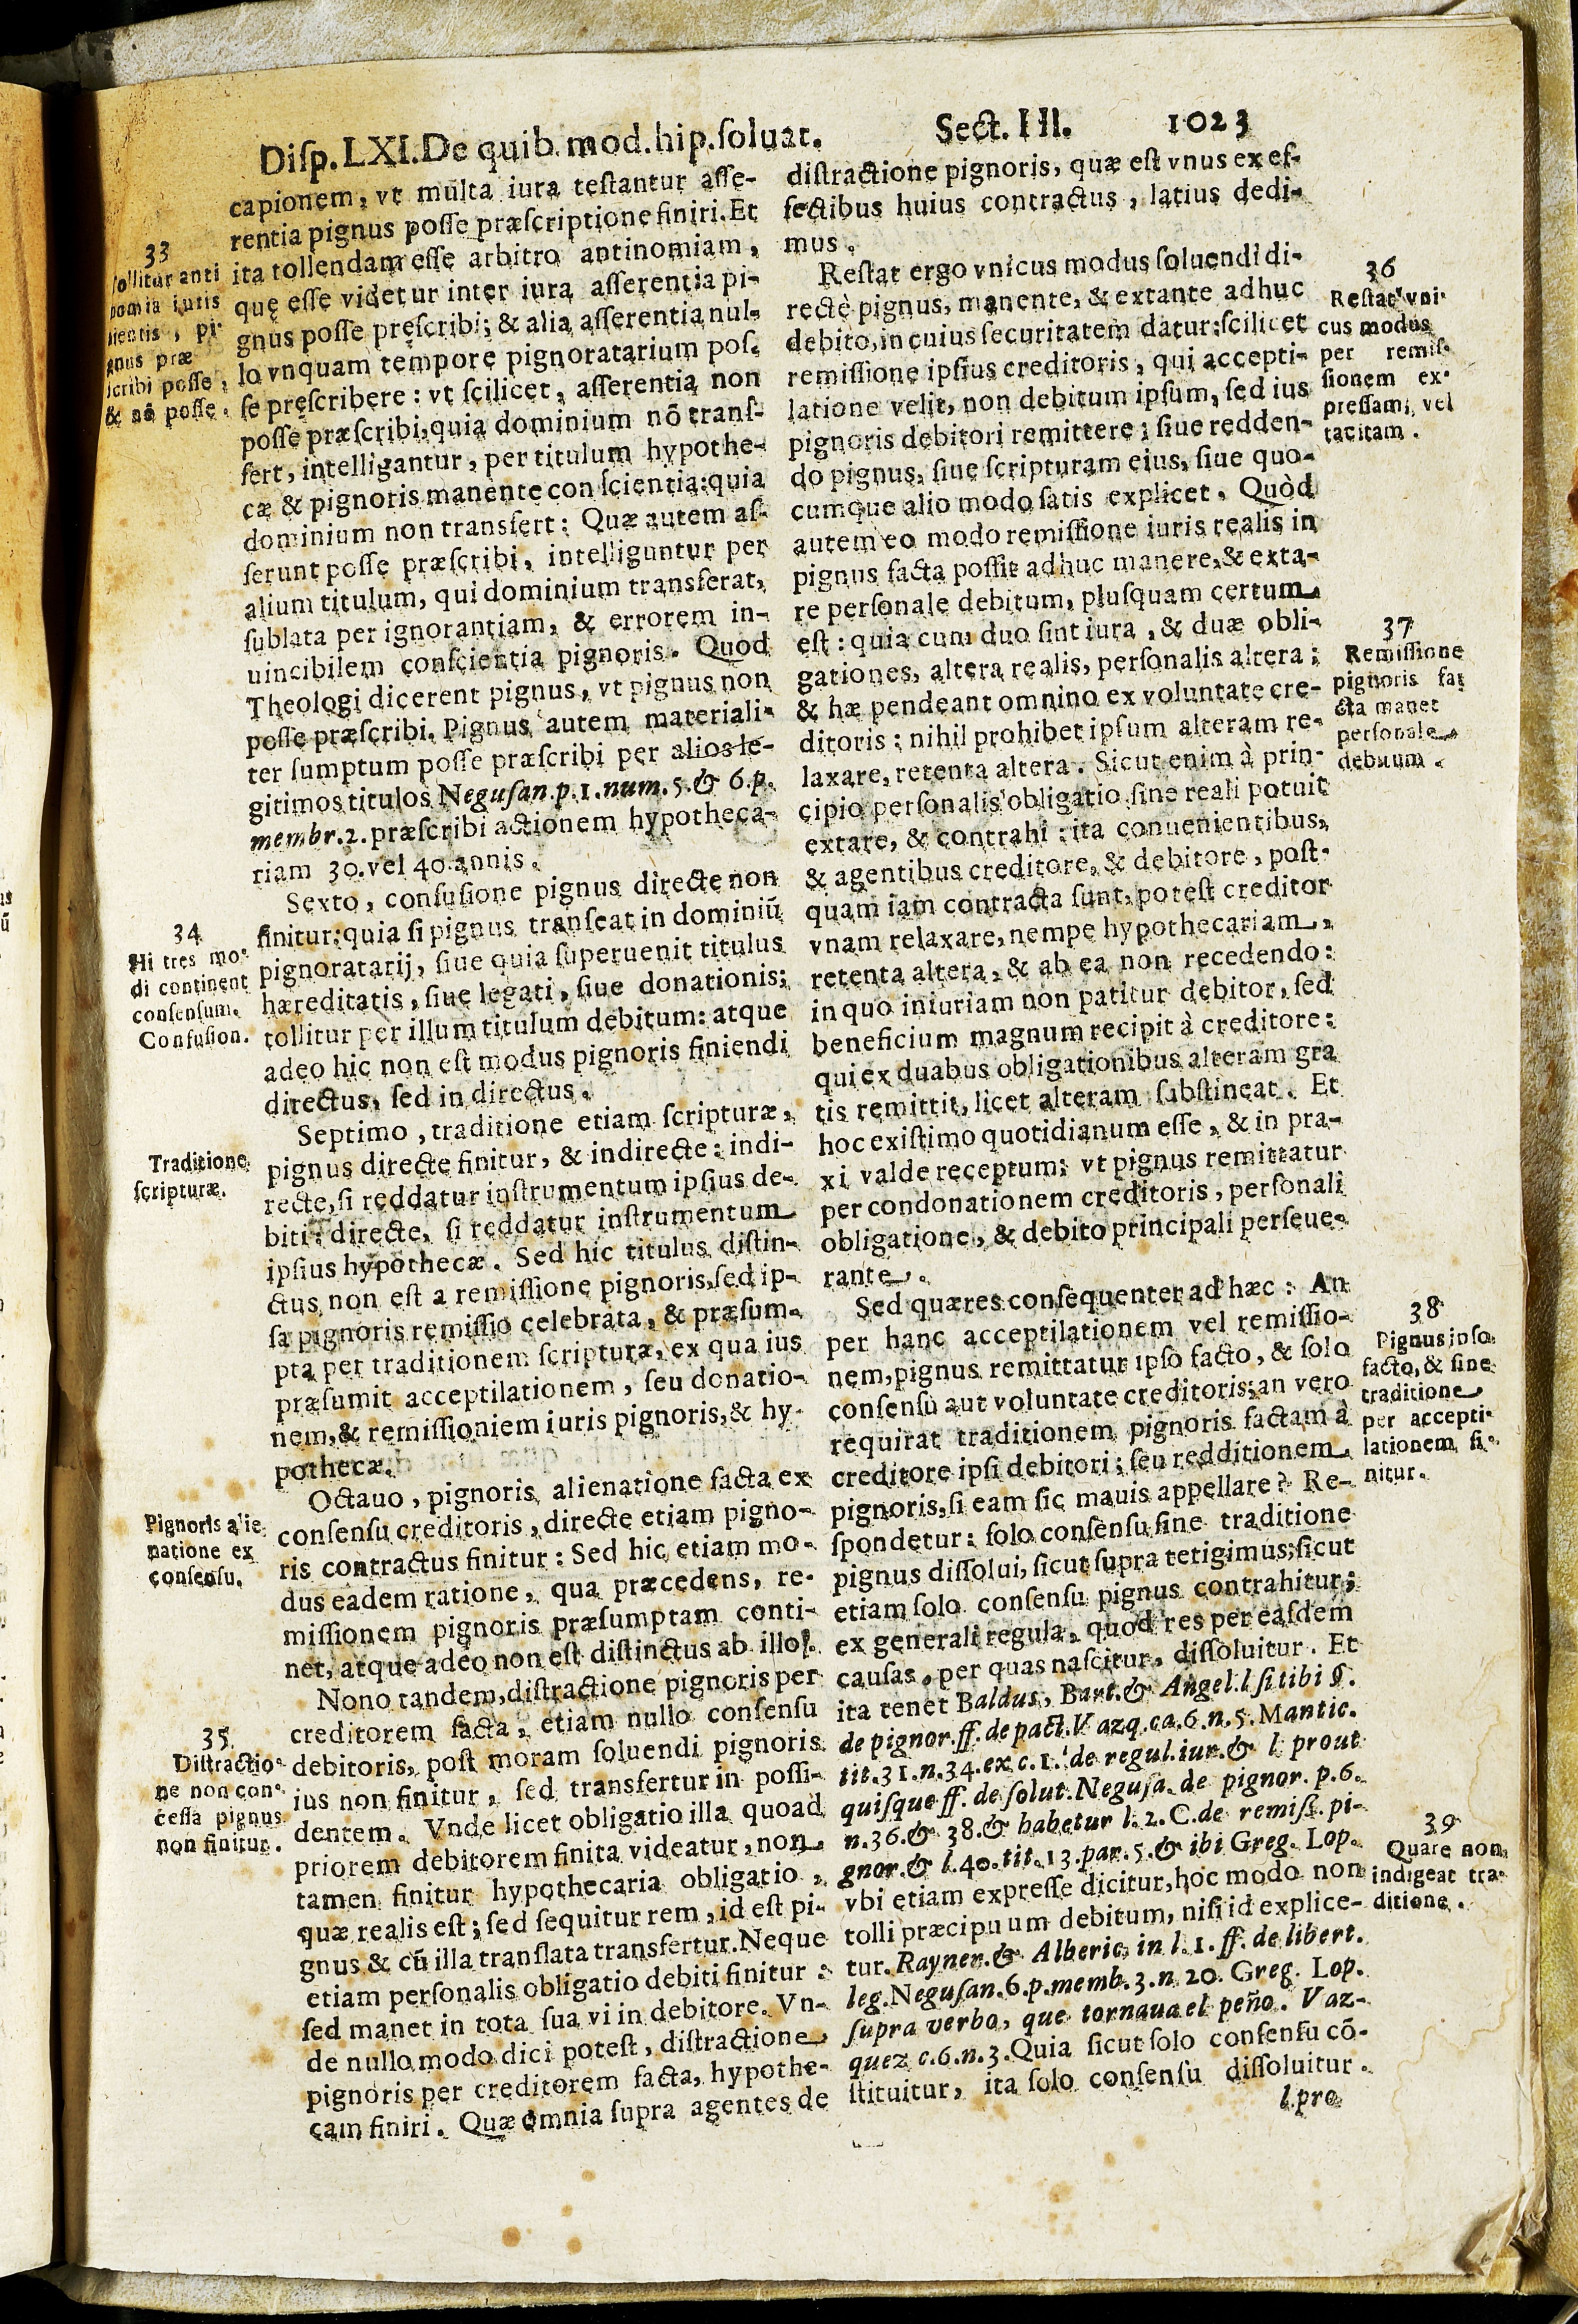 Disp. LXI. De quib. mod. hip. soluat. Sect. III. 1023
capionem, vt multa iura testantur asse-
rentia pignus posse præscriptione finiri. Et
ita tollendam esse arbitro antinomiam,
quę esse videtur inter iura asserentia pi-
gnus posse pręscribi; & alia asserentia nul-
lo vnquam tempore pignoratarium pos-
se pręscribere: vt scilicet, asserentia non
posse præscribi, quia dominium nō trans-
fert, intelligantur, per titulum hypothe-
cæ & pignoris manente conscientia: quia
dominium non transfert: Quæ autem as-
serunt posse præscribi, intelliguntur per
alium titulum, qui dominium transferat,
sublata per ignorantiam, & errorem in-
uincibilem conscientia pignoris. Quod
Theologi dicerent pignus, vt pignus non
posse præscribi. Pignus autem materiali-
ter sumptum posse præscribi per alios le-
gitimos titulos Negusan. p. 1. num. 5. & 6. p.
membr. 2. præscribi actionem hypotheca-
riam 30. vel 40. annis.
Sexto, confusione pignus directe non
finitur: quia si pignus transeat in dominiū
pignoratarij, siue quia superuenit titulus
hæreditatis, siue legati, siue donationis;
tollitur per illum titulum debitum: atque
adeo hic non est modus pignoris finiendi
directus, sed in directus.
Septimo, traditione etiam scripturæ,
pignus directe finitur, & indirecte: indi-
recte, si reddatur instrumentum ipsius de-
biti: directe, si reddatur instrumentum
ipsius hypothecæ. Sed hic titulus distin-
ctus non est a remissione pignoris, sed ip-
sa pignoris remissio celebrata, & præsum-
pta per traditionem scripturæ, ex qua ius
præsumit acceptilationem, seu donatio-
nem, & remissioniem iuris pignoris, & hy-
pothecæ.
Octauo, pignoris alienatione facta ex
consensu creditoris, directe etiam pigno-
ris contractus finitur: Sed hic etiam mo-
dus eadem ratione, qua præcedens, re-
missionem pignoris præsumptam conti-
net, atque adeo non est distinctus ab illo.
Nono tandem, distractione pignoris per
creditorem facta, etiam nullo consensu
debitoris, post moram soluendi pignoris
ius non finitur, sed transfertur in possi-
dentem. Vnde licet obligatio illa quoad
priorem debitorem finita videatur, non
tamen finitur hypothecaria obligatio,
quæ realis est; sed sequitur rem, id est pi-
gnus & cū illa translata transfertur. Neque
etiam personalis obligatio debiti finitur:
sed manet in tota sua vi in debitore. Vn-
de nullo modo dici potest, distractione
pignoris per creditorem facta, hypothe-
cam finiri. Quæ omnia supra agentes de
33
tollitur anti
nomia iuris
pi-
gnus præ
scribi posse,
& nō posse.
34
Hi tres mo-
di continent
consensum.
Confusion.
Traditione
scripturæ.
Pignoris alie
natione ex
consensu.
35.
Distractio-
ne non con-
cessa pignus
non finitur.
distractione pignoris, quæ est vnus ex ef-
fectibus huius contractus, latius dedi-
mus.
Restat ergo vnicus modus soluendi di-
rectè pignus, manente, & extante adhuc
debito, in cuius securitatem datur: scilicet
remissione ipsius creditoris, qui accepti-
latione velit, non debitum ipsum, sed ius
pignoris debitori remittere; siue redden-
do pignus, siue scripturam eius, siue quo-
cumque alio modo satis explicet. Quòd
autem eo modo remissione iuris realis in
pignus facta possit adhuc manere, & exta-
re personale debitum, plusquam certum
est: quia cum duo sint iura, & duæ obli-
gationes, altera realis, personalis altera;
& hæ pendeant omnino ex voluntate cre-
ditoris; nihil prohibet ipsum alteram re-
laxare, retenta altera. Sicut enim à prin-
cipio personalis obligatio sine reali potuit
extare, & contrahi: ita conuenientibus,
& agentibus creditore, & debitore, post-
quam iam contracta sunt, potest creditor
vnam relaxare, nempe hypothecariam,
retenta altera, & ab ea non recedendo:
in quo iniuriam non patitur debitor, sed
beneficium magnum recipit à creditore:
qui ex duabus obligationibus alteram gra
tis remittit, licet alteram substineat. Et
hoc existimo quotidianum esse, & in pra-
xi valde receptum; vt pignus remittatur
per condonationem creditoris, personali
obligatione, & debito principali perseue-
rante.
Sed quæres consequenter ad hæc: An
per hanc acceptilationem vel remissio-
nem, pignus remittatur ipso facto, & solo
consensu aut voluntate creditoris; an vero
requirat traditionem pignoris factam à
creditore ipsi debitori; seu redditionem
pignoris, si eam sic mauis appellare? Re-
spondetur: solo consensu sine traditione
pignus dissolui, sicut supra tetigimus; sicut
etiam solo consensu pignus contrahitur;
ex generali regula, quod res per easdem
causas, per quas nascitur, dissoluitur. Et
ita tenet Baldus, Bart. & Angel. l. si tibi §.
de pignor. ff. de pact. Vazq. ca. 6. n. 5. Mantic.
tit. 31. n. 34. ex c. 1. de regul. iur. & l. prout
quisque ff. de solut. Negusa. de pignor. p. 6.
n. 36. & 38. & habetur l. 2. C. de remiss. pi-
gnor. & l. 40. tit. 13. par. 5. & ibi Greg. Lop.
vbi etiam expresse dicitur, hoc modo non
tolli præcipuum debitum, nisi id explice-
tur. Rayner. & Alberic. in l. 1. ff. de libert.
leg. Negusan. 6. p. memb. 3. n. 20. Greg. Lop.
supra verbo, que tornaua el peño. Vaz-
quez c. 6. n. 3. Quia sicut solo consensu cō-
stituitur, ita solo consensu dissoluitur.
l. pro
36
Restat vni-
cus modus
per remis-
sionem ex-
pressam, vel
tacitam.
37
Remissione
pignoris fa-
cta manet
personale
debitum.
38
Pignus ipso
facto, & sine
traditione
per accepti-
lationem fi-
nitur.
39
Quare non
indigeat tra-
ditione.